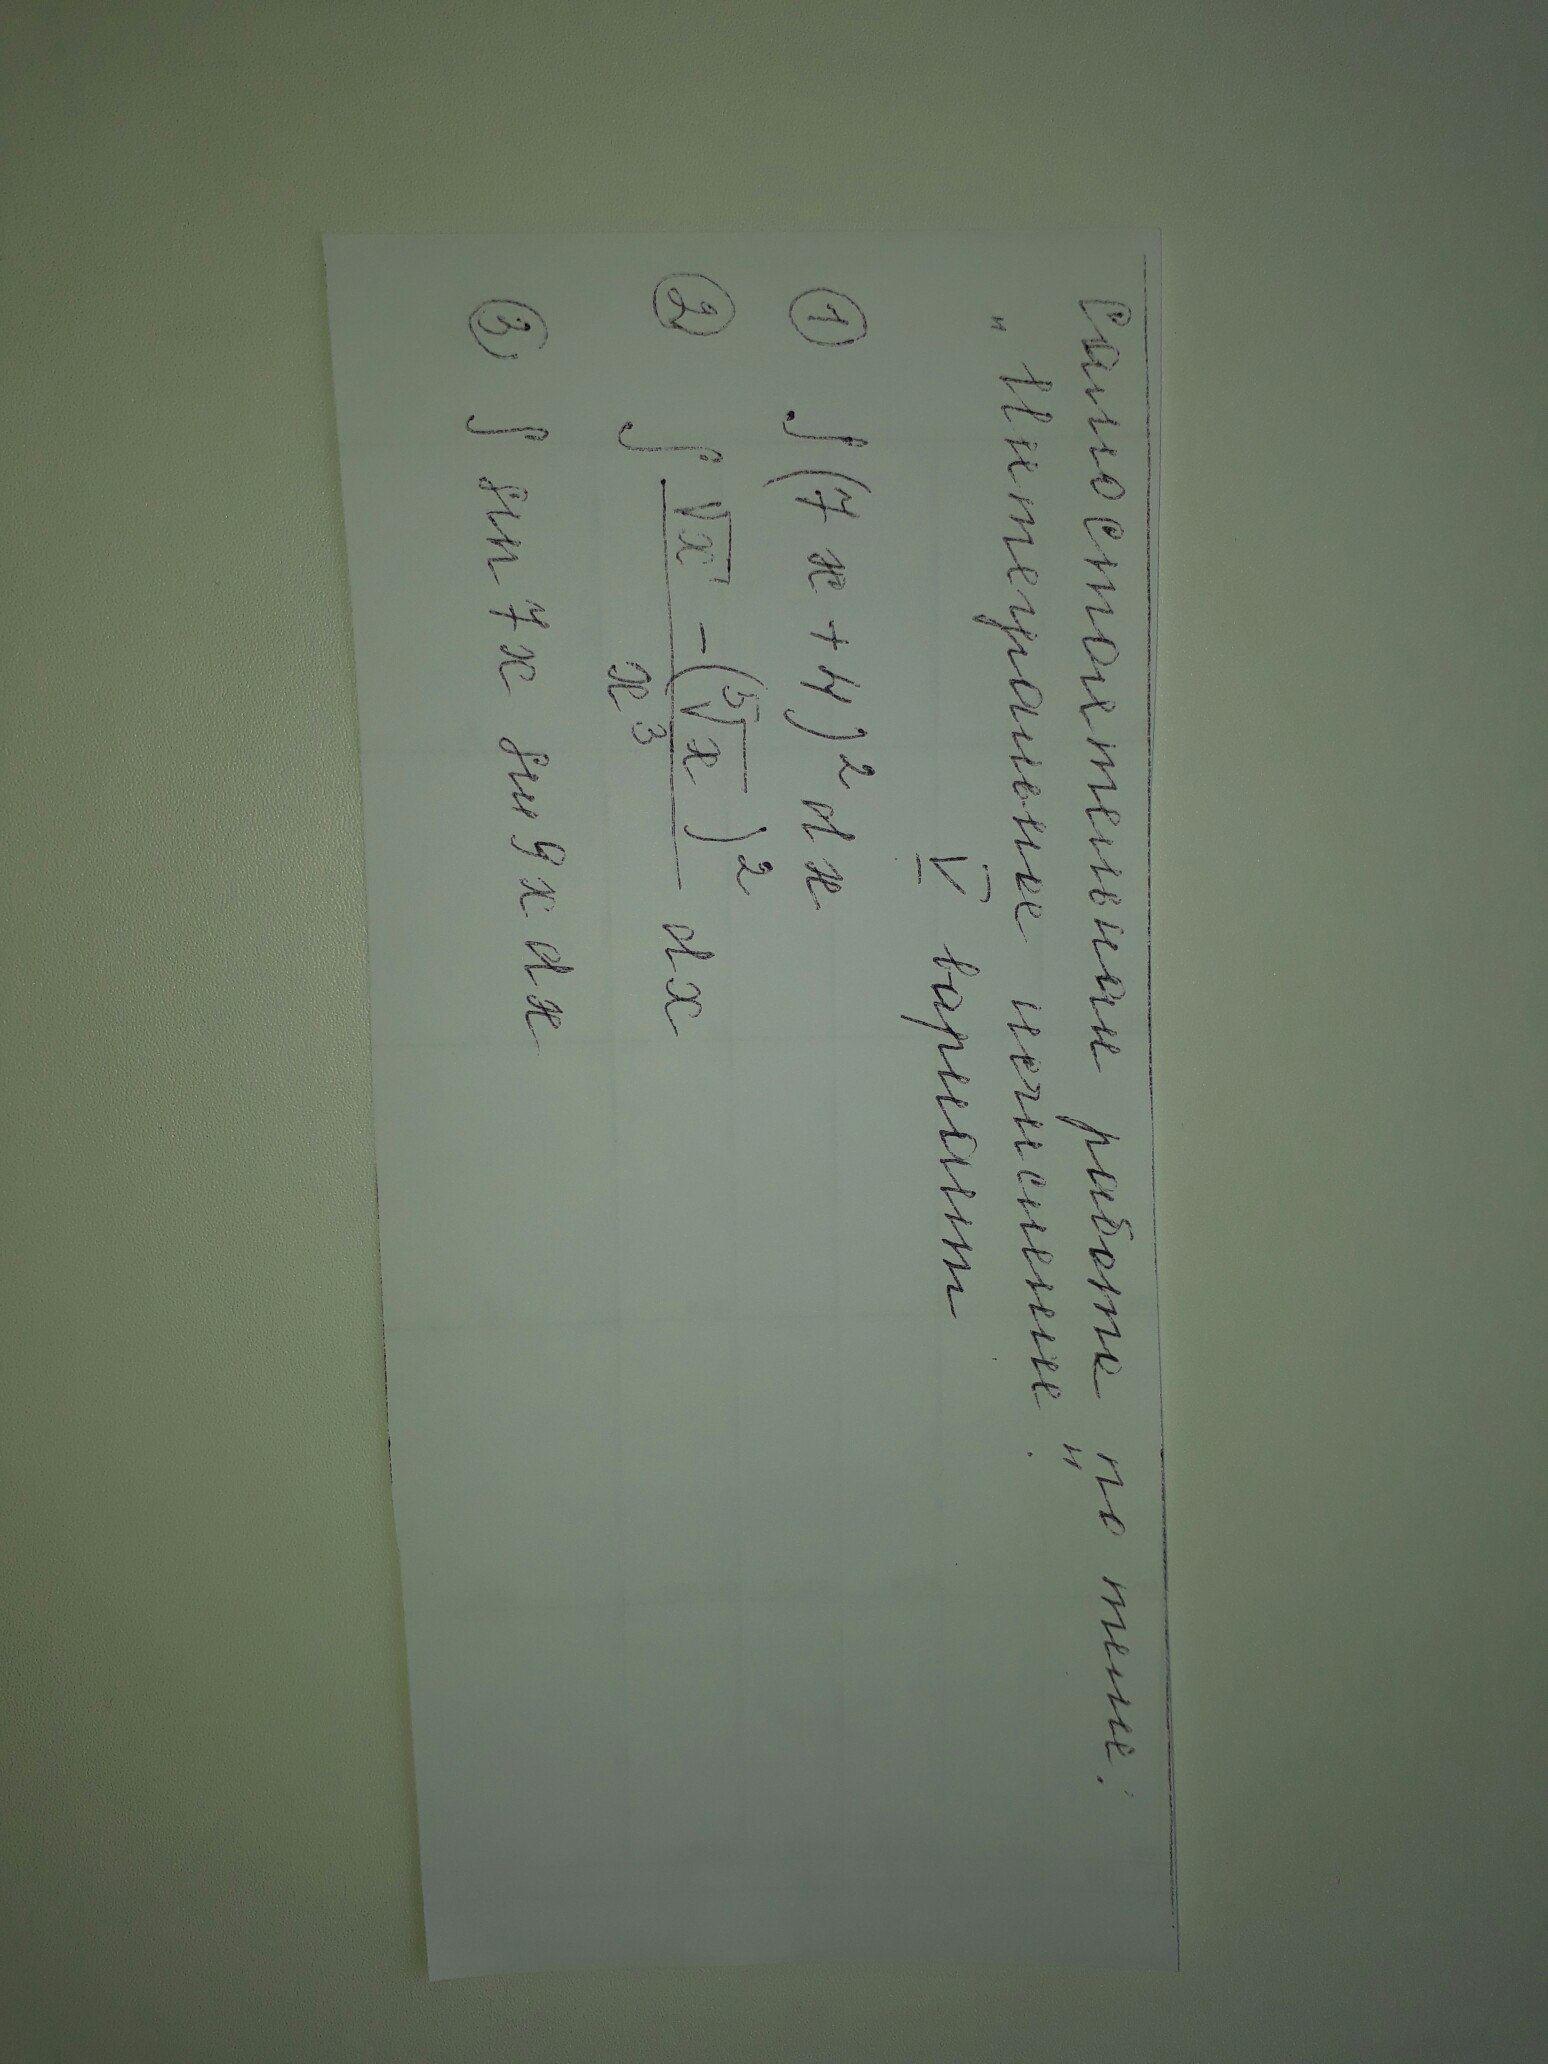 Самостоятельная работа по теме:
"Интегральное исчисление."
V вариант
① ∫(7x+4)²dx
② ∫ (√x - (⁵√x)²)/x³ dx
③ ∫ sin7x sin9x dx